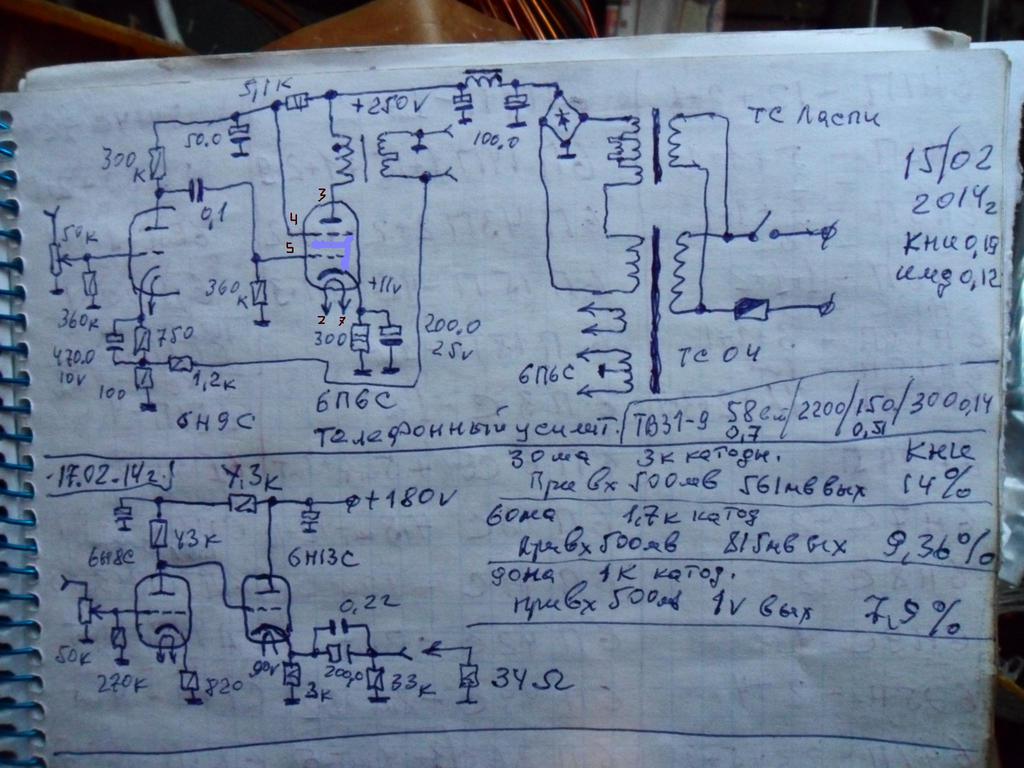 5,1К
+250V
50,0
100,0
ТС Ласпи
300
К
0,1
15/02
2014г
КНИ 0,19
ИМД 0,12
3
4
5
50К
360К
360
К
+11v
2 7
300
200,0
25v
750
470.0
10v
100
1,2К
6П6С
6П6С
ТС 04
6Н9С
Телефонный усилит.
ТВ31-9 58см/2200/150/300 0,14
0,7 0,51
30ма 3к катодн. КНИ
При вх 500мв 561мв вых 14%
60ма 1,7к катод
При вх 500мв 815мв вых 9,36%
90ма 1К катод.
При вх 500мв 1v вых 7,9%
17.02.14г.
+180V
43К
6Н8С
6Н13С
0,22
50К
270К
820
90v
3К
200,0
33К
34Ω